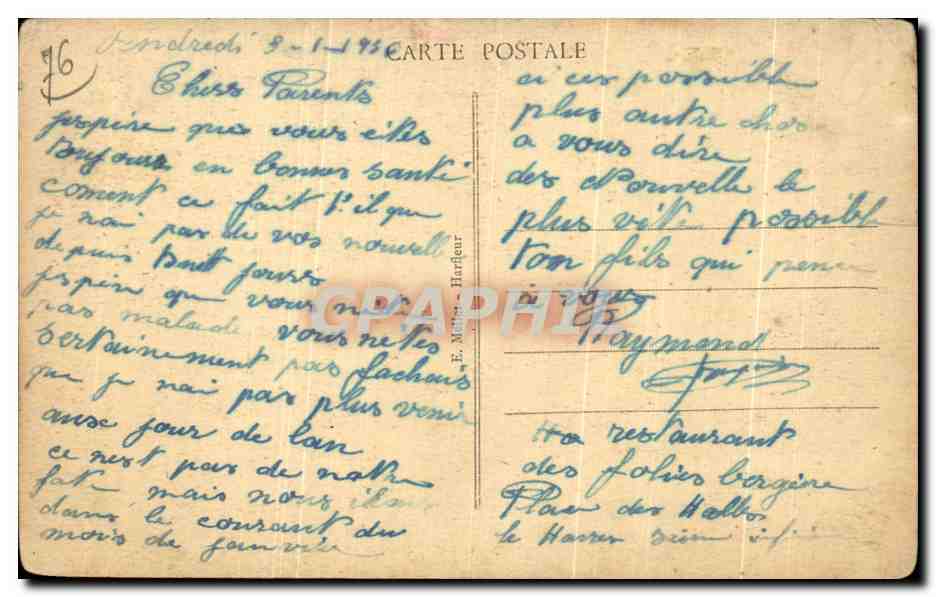 76
Vendredi 3-1-193
CARTE POSTALE
Chers Parents
jespire que vous êtes
toujours en bonnes santé
coment ce fait t'il que
je nai pas de vos nouvell
depuis tout jours
jespire que vous nete
pas malade vous netes
sertainement pas fachais
que je nai pas plus venir
aux jour de lan
ce nest pas de notre
fote mais nous iron
dans le courant du
mois de janvier
E. Mallet - Harfleur
CPAPHIL
ci ces possible
plus autre chos
a vous dire
des Nouvelle le
plus vite possibl
ton fils qui pense
a vous
Raymond
restaurant
des folies bergère
Place des Halles
le Havre Seine